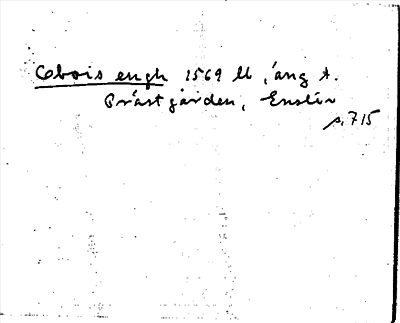 Cobois engh 1569 ll, äng t.
Prästgården, Enslöv
s. 715